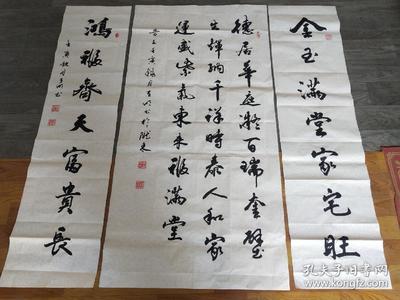 金玉滿堂家宅旺
德居華庭凝百瑞奎壁
生輝納千祥時泰人和家
運盛紫氣東來福滿堂
鴻福齊天富貴長
孔夫子旧书网
kongfz.com